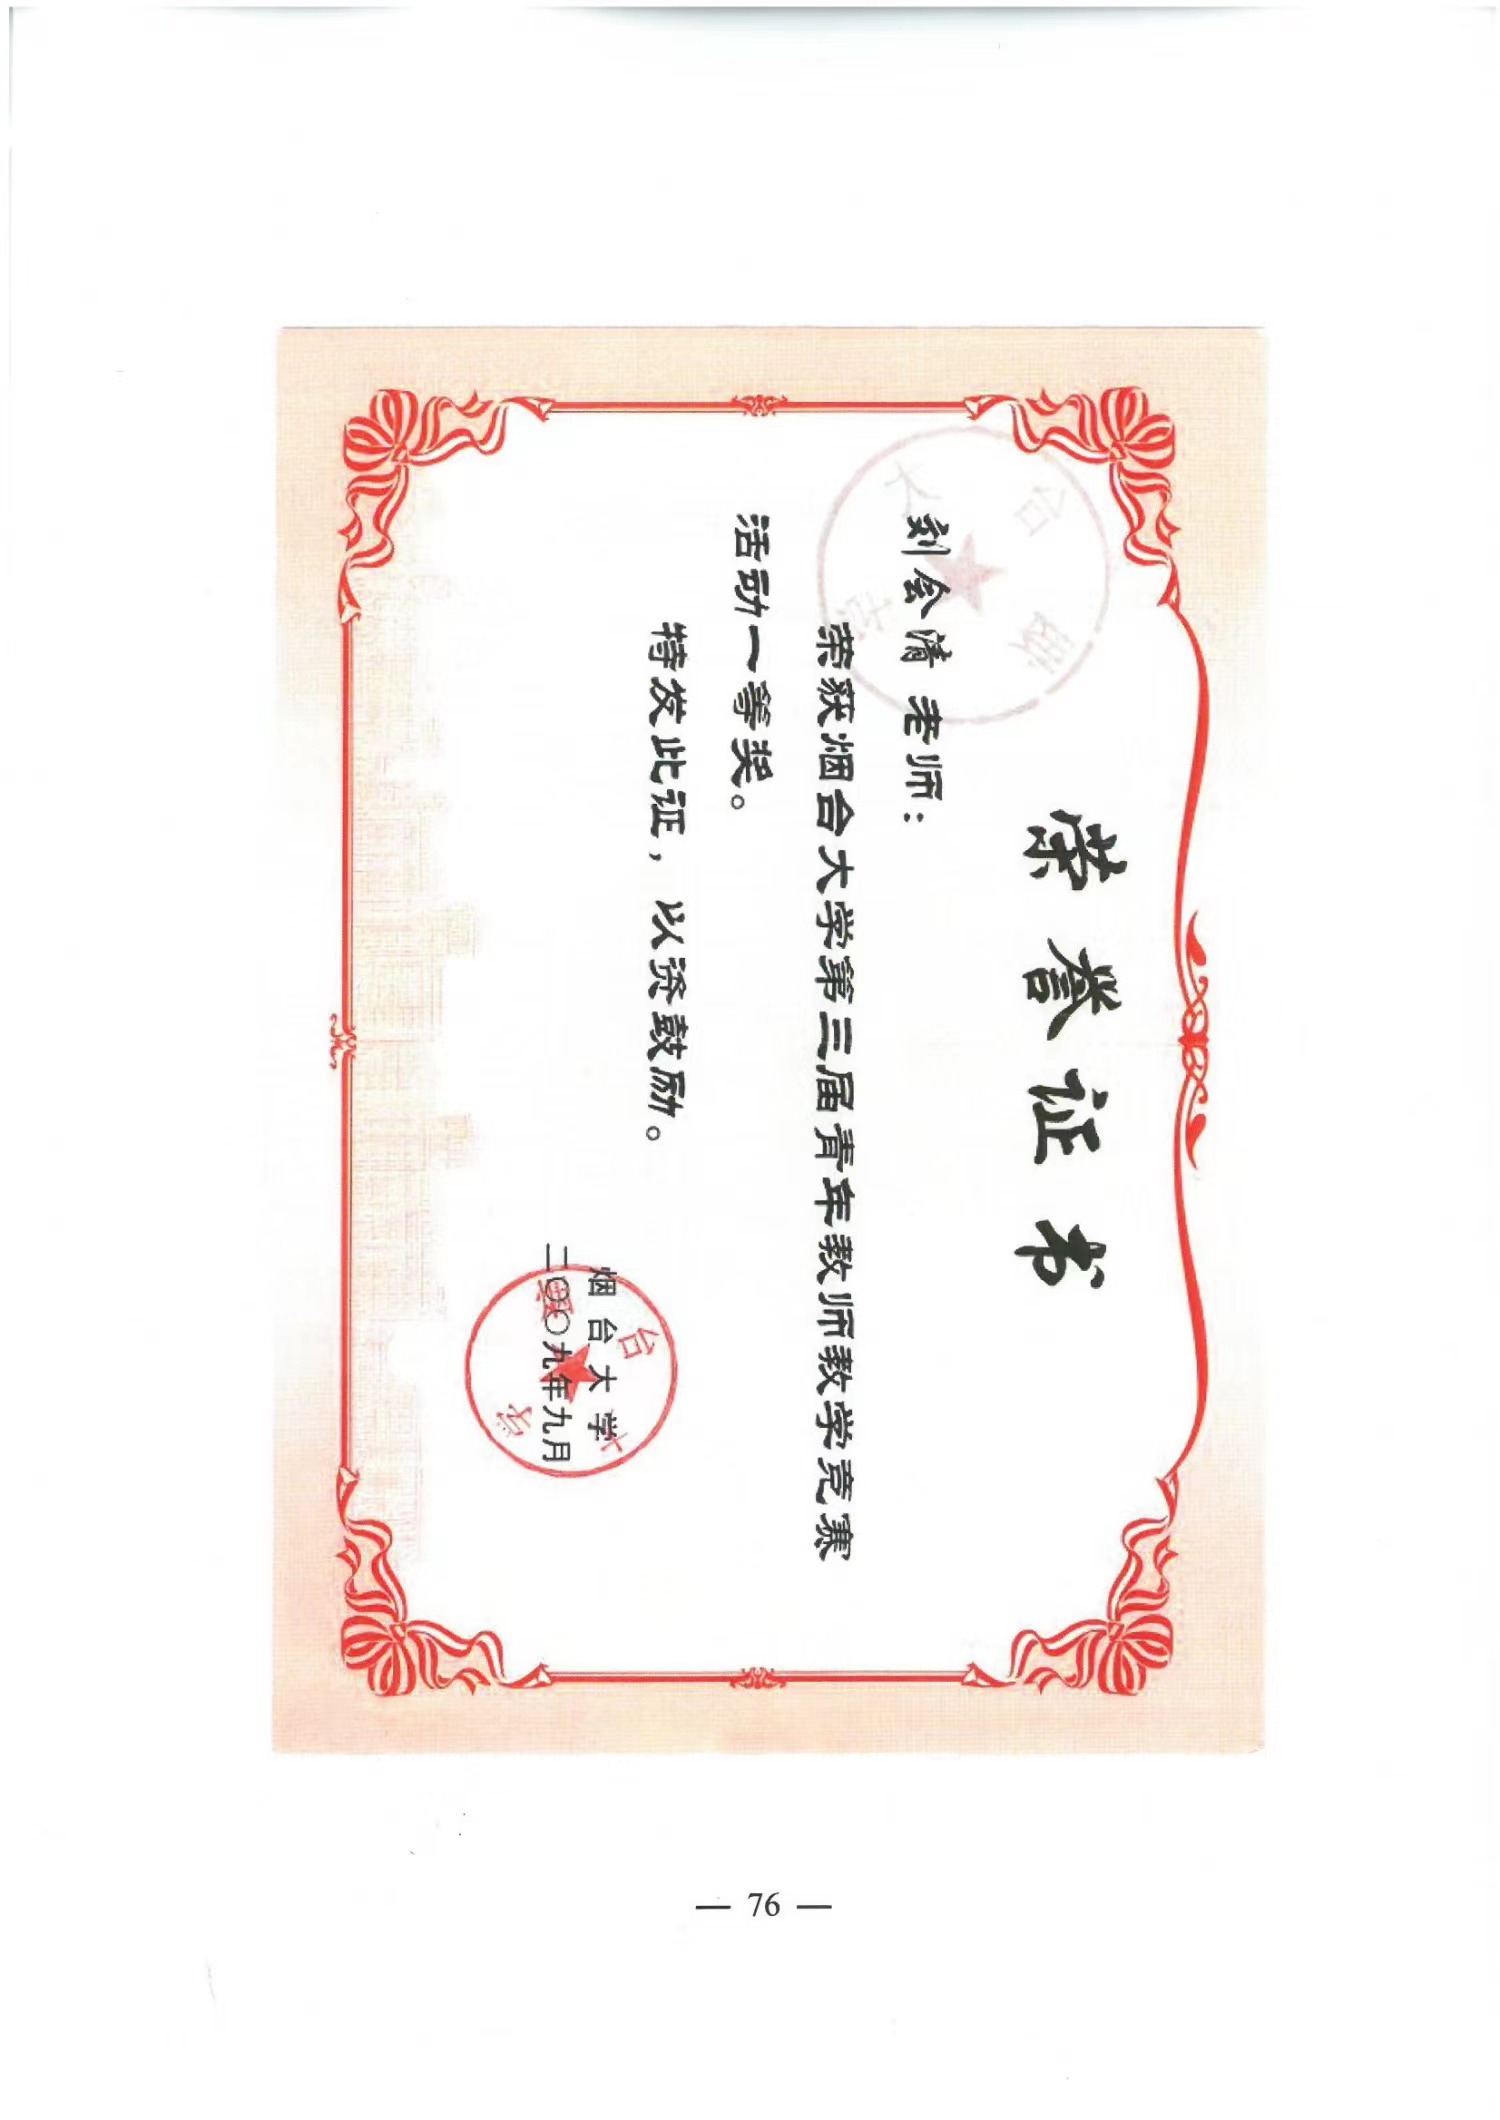 荣誉证书
刘会清 老师：
荣获烟台大学第三届青年教师教学竞赛
活动一等奖。
特发此证，以资鼓励。
烟台大学
二〇〇九年九月
台大学
— 76 —